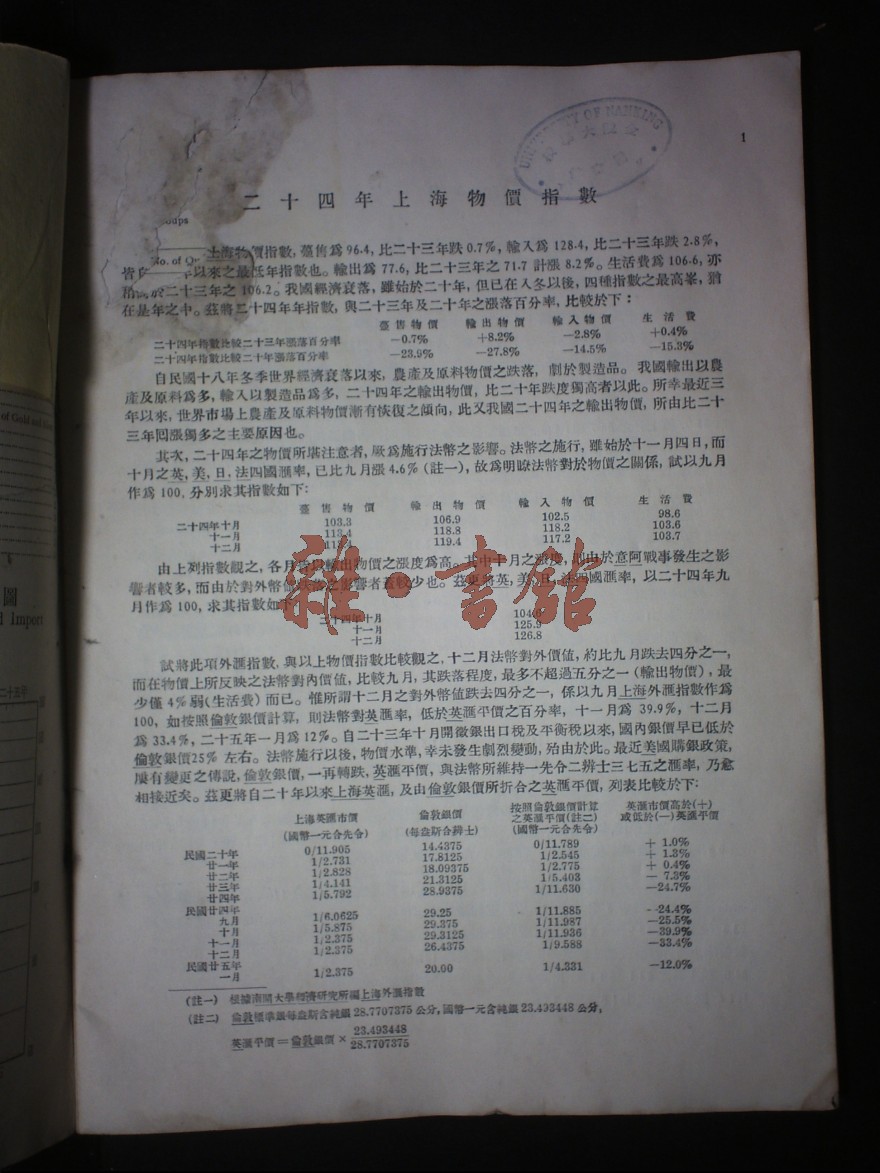 1
UNIVERSITY OF NANKING
二十四年上海物價指數
oups
No. of Qu
上海物價指數，躉售爲96.4，比二十三年跌0.7%，輸入爲128.4，比二十三年跌2.8%，
皆 以來之最低年指數也。輸出爲77.6，比二十三年之71.7計漲8.2%。生活費爲106.6，亦
於二十三年之106.2。我國經濟衰落，雖始於二十年，但已在入冬以後，四種指數之最高峯，猶
在是年之中。茲將二十四年年指數，與二十三年及二十年之漲落百分率，比較於下：
躉售物價 輸出物價 輸入物價 生活費
二十四年指數比較二十三年漲落百分率 —0.7% +8.2% —2.8% +0.4%
二十四年指數比較二十年漲落百分率 —23.9% —27.8% —14.5% —15.3%
自民國十八年冬季世界經濟衰落以來，農產及原料物價之跌落，劇於製造品。我國輸出以農
產及原料爲多，輸入以製造品爲多，二十四年之輸出物價，比二十年跌度獨高者以此。所幸最近三
年以來，世界市場上農產及原料物價漸有恢復之傾向，此又我國二十四年之輸出物價，所由比二十
三年回漲獨多之主要原因也。
其次，二十四年之物價所堪注意者，厥爲施行法幣之影響。法幣之施行，雖始於十一月四日，而
十月之英，美，日，法四國滙率，已比九月漲4.6%（註一），故爲明瞭法幣對於物價之關係，試以九月
作爲100，分別求其指數如下：
躉售物價 輸出物價 輸入物價 生活費
二十四年十月 103.3 106.9 102.5 98.6
十一月 113.4 118.8 118.2 103.6
十二月 119.4 117.2 103.7
由上列指數觀之，各月皆以輸出物價之漲度爲高。其中十月之漲度，則由於意阿戰事發生之影
響者較多，而由於對外幣值跌落之影響者蓋較少也。茲更將英，美，日，法四國滙率，以二十四年九
月作爲100，求其指數如下
二十四年十月 104.6
十一月 125.9
十二月 126.8
雜·書館
試將此項外滙指數，與以上物價指數比較觀之，十二月法幣對外價値，約比九月跌去四分之一，
而在物價上所反映之法幣對內價値，比較九月，其跌落程度，最多不超過五分之一（輸出物價），最
少僅4%弱（生活費）而已。惟所謂十二月之對外幣値跌去四分之一，係以九月上海外滙指數作爲
100，如按照倫敦銀價計算，則法幣對英滙率，低於英滙平價之百分率，十一月爲39.9%，十二月
爲33.4%，二十五年一月爲12%。自二十三年十月開徵銀出口稅及平衡稅以來，國內銀價早已低於
倫敦銀價25%左右。法幣施行以後，物價水準，幸未發生劇烈變動，殆由於此。最近美國購銀政策，
屢有變更之傳說，倫敦銀價，一再轉跌，英滙平價，與法幣所維持一先令二辨士三七五之滙率，乃愈
相接近矣。茲更將自二十年以來上海英滙，及由倫敦銀價所折合之英滙平價，列表比較於下：
上海英滙市價 倫敦銀價 按照倫敦銀價計算 英滙市價高於(+)
之英滙平價(註二) 或低於(—)英滙平價
(國幣一元合先令) (每盎斯合辨士) (國幣一元合先令)
民國二十年 0/11.905 14.4375 0/11.789 + 1.0%
廿一年 1/2.731 17.8125 1/2.545 + 1.3%
廿二年 1/2.828 18.09375 1/2.775 + 0.4%
廿三年 1/4.141 21.3125 1/5.403 — 7.3%
廿四年 1/5.792 28.9375 1/11.630 —24.7%
民國廿四年
九月 1/6.0625 29.25 1/11.885 —24.4%
十月 1/5.875 29.375 1/11.987 —25.5%
十一月 1/2.375 29.3125 1/11.936 —39.9%
十二月 1/2.375 26.4375 1/9.588 —33.4%
民國廿五年
一月 1/2.375 20.00 1/4.331 —12.0%
(註一) 根據南開大學經濟研究所編上海外滙指數
(註二) 倫敦標準銀每盎斯含純銀28.7707375公分，國幣一元含純銀23.493448公分，
英滙平價＝倫敦銀價×23.493448
28.7707375
of Gold and
圖
d Import
二十五年